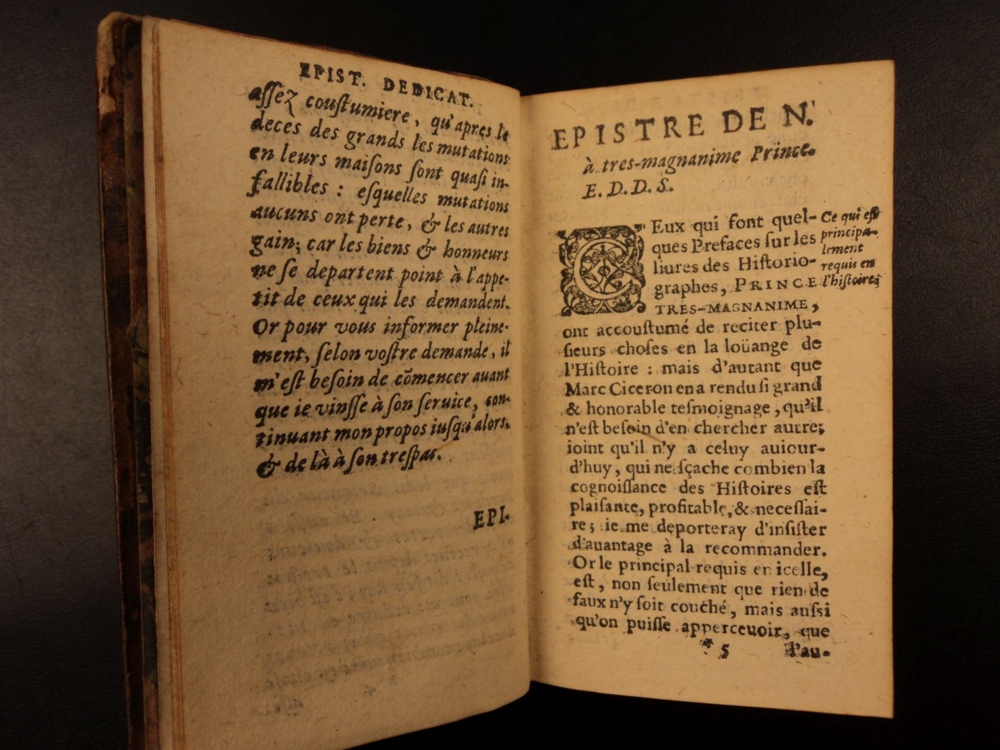 EPIST. DEDICAT.
assez coustumiere, qu'apres le
deces des grands les mutations
en leurs maisons sont quasi in-
fallibles : esquelles mutations
aucuns ont perte, & les autres
gain; car les biens & honneurs
ne se departent point à l'appe-
tit de ceux qui les demandent.
Or pour vous informer pleine-
ment, selon vostre demande, il
m'est besoin de cõmencer auant
que ie vinsse à son seruice, con-
tinuant mon propos iusqu'alors,
& de là à son trespas.
EPI-
EPISTRE DE N.
à tres-magnanime Prince.
E. D. D. S.
CEux qui font quel-
ques Prefaces sur les
liures des Historio-
graphes, PRINCE
TRES-MAGNANIME,
ont accoustumé de reciter plu-
sieurs choses en la loüange de
l'Histoire : mais d'autant que
Marc Ciceron en a rendu si grand
& honorable tesmoignage, qu'il
n'est besoin d'en chercher autre;
ioint qu'il n'y a celuy auiour-
d'huy, qui ne sçache combien la
cognoissance des Histoires est
plaisante, profitable, & necessai-
re; ie me deporteray d'insister
d'auantage à la recommander.
Or le principal requis en icelle,
est, non seulement que rien de
faux n'y soit couché, mais aussi
qu'on puisse apperceuoir, que
* 5 l'au-
Ce qui est
principa-
lement
requis en
l'histoire;